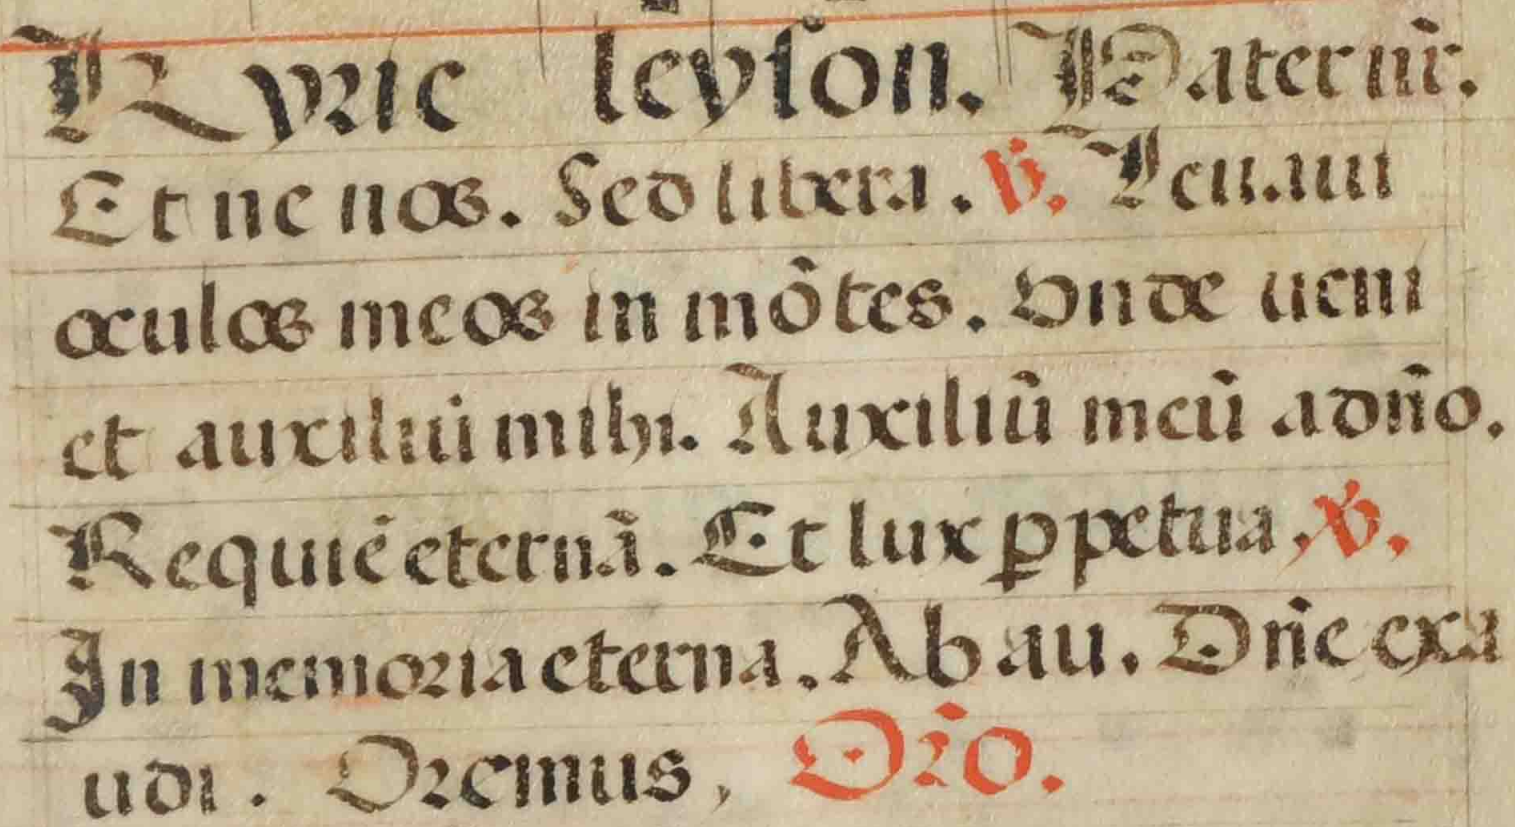 Kyrie leyson. Pater nr̄.
Et ne nos. Sed libera. ℣. Leuaui
oculos meos in mōtes. Vnde ueni
et auxiliū mihi. Auxiliū meū a dn̄o.
Requiē eternā. Et lux ꝑpetua. ℣.
In memoria eterna. Ab au. Dn̄e exa
udi. Oremus, Or̄o.